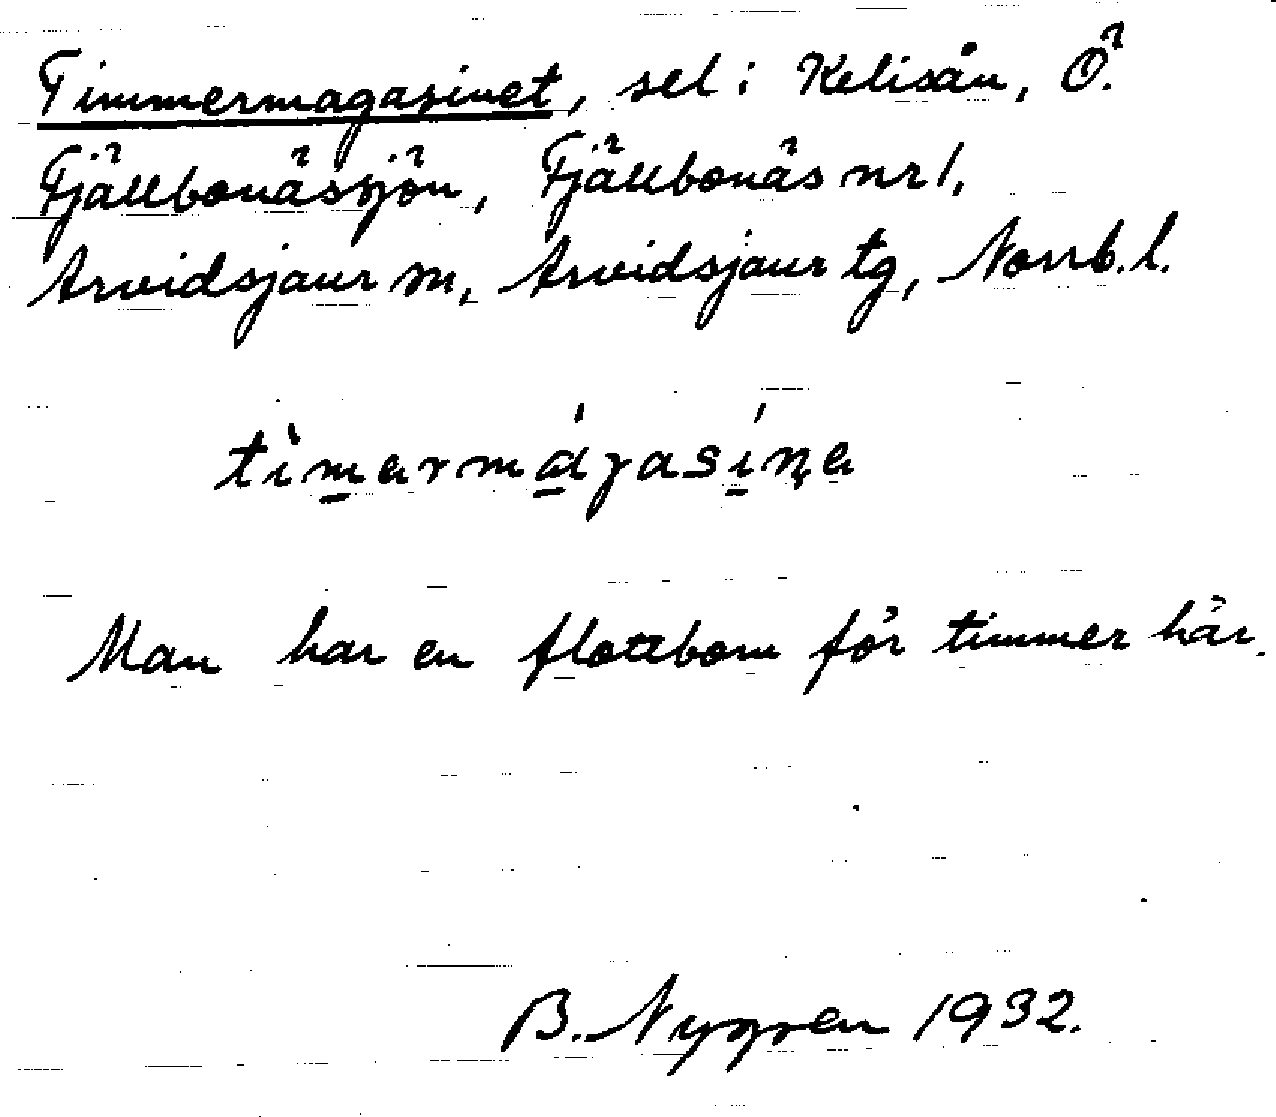 Timmermagasinet, sel i Kelisån, Ö.
Fjällbonässjön, Fjällbonäs nr 1,
Arvidsjaur sn, Arvidsjaur tg, Norrb. l.
Man har en flottbom för timmer här.
B. Nygren 1932.